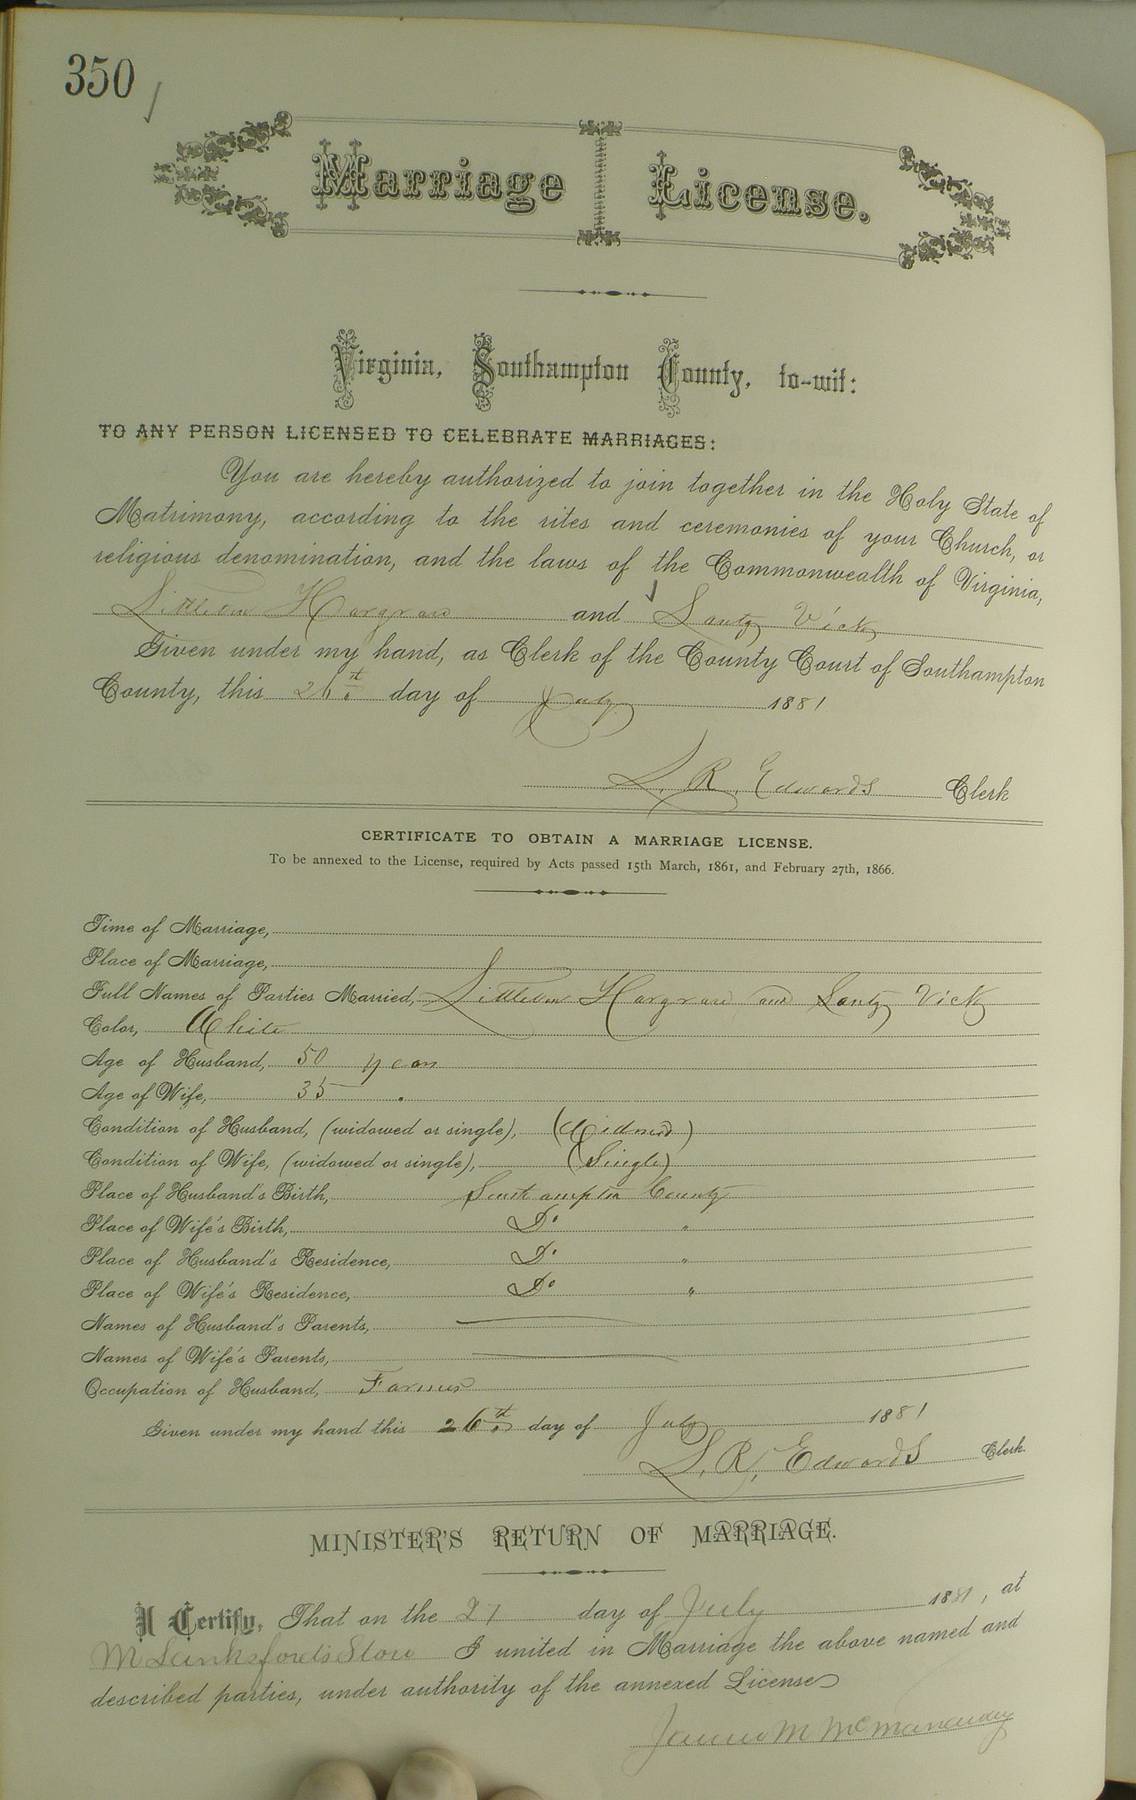 350
Marriage License.
Virginia, Southampton County, to-wit:
TO ANY PERSON LICENSED TO CELEBRATE MARRIAGES:
You are hereby authorized to join together in the Holy State of
Matrimony, according to the rites and ceremonies of your Church, or
religious denomination, and the laws of the Commonwealth of Virginia,
Littleton Hargrave and Vick
Given under my hand, as Clerk of the County Court of Southampton
County, this 26th day of July 1881
L. R. Edwards Clerk
CERTIFICATE TO OBTAIN A MARRIAGE LICENSE.
To be annexed to the License, required by Acts passed 15th March, 1861, and February 27th, 1866.
Time of Marriage,
Place of Marriage,
Full Names of Parties Married, Littleton Hargrave and Vick
Color, White
Age of Husband, 50 years
Age of Wife, 35 "
Condition of Husband, (widowed or single), (Widowed)
Condition of Wife, (widowed or single), (Single)
Place of Husband's Birth, Southampton County
Place of Wife's Birth, Do "
Place of Husband's Residence, Do "
Place of Wife's Residence, Do "
Names of Husband's Parents,
Names of Wife's Parents,
Occupation of Husband, Farmer
Given under my hand this 26th day of July 1881
L. R. Edwards Clerk.
MINISTER'S RETURN OF MARRIAGE.
I Certify, That on the 27 day of July 1881, at
M Lankford's Store I united in Marriage the above named and
described parties, under authority of the annexed License
James M